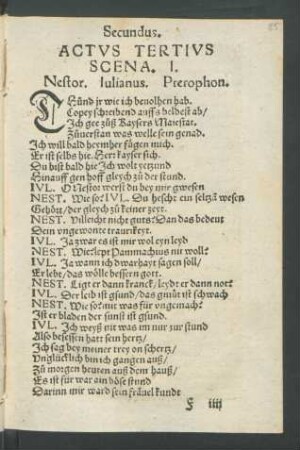 Secundus.
ACTVS TERTIVS
SCENA. I.
Nestor. Iulianus. Prerophon.
Thůnd jr wie ich beuolhen hab.
Copey schreibend auffs beldest ab/
Ich gee zůß Kaysers Maiestat.
Zůuerstan was welle sein genad.
Ich will bald heymher fůgen mich.
Er ist selbs hie. Herr kayser sich.
Du bist bald hie Ich wolt yetzund
Hinauff gen hoff gleych zů der stund.
IVL. O Nestor werst du bey mir gwesen
NEST. Wie so? IVL. Du hescht ein selzā wesen
Gehört/ der gleych zů keiner zeyt.
NEST. Villeicht nicht guts: Dan das bedeut
Dein vngewonte traurikeyt.
IVL. Ja zwar es ist mir wol eyn leyd
NEST. Wie: lept Pammachius nit woll?
IVL. Ja wann ich dwarhayt sagen soll/
Er lebt/ das wölle bessern gott.
NEST. Ligt er dann kranck/ leydt er dann not?
IVL. Der leib ist gsund/ das gmüt ist schwach
NEST. Wie so? mit was für vngemach?
Ist er bladen der sunst ist gsund.
IVL. Ich weyß nit was im nur zur stund
Also besessen hatt sein hertz/
Ich sag bey meiner trey on schertz/
Vnglücklich bin ich gangen auß/
Zů morgen heuten auß dem hauß/
Es ist für war ain böse stund
Darinn mir ward sein fräuel kundt
F iiij